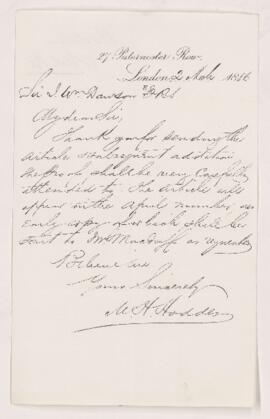 27, Paternoster Row,
London, 2 Mch 1886
Sir J. Wm Dawson
My dear Sir,
Thank you for sending the
article & subsequent addition
the proof shall be very carefully
attended to. The article will
appear in the April number, an
early copy of which shall be
sent to Mr as requested
Believe me
Yours Sincerely
M. H. Hodder